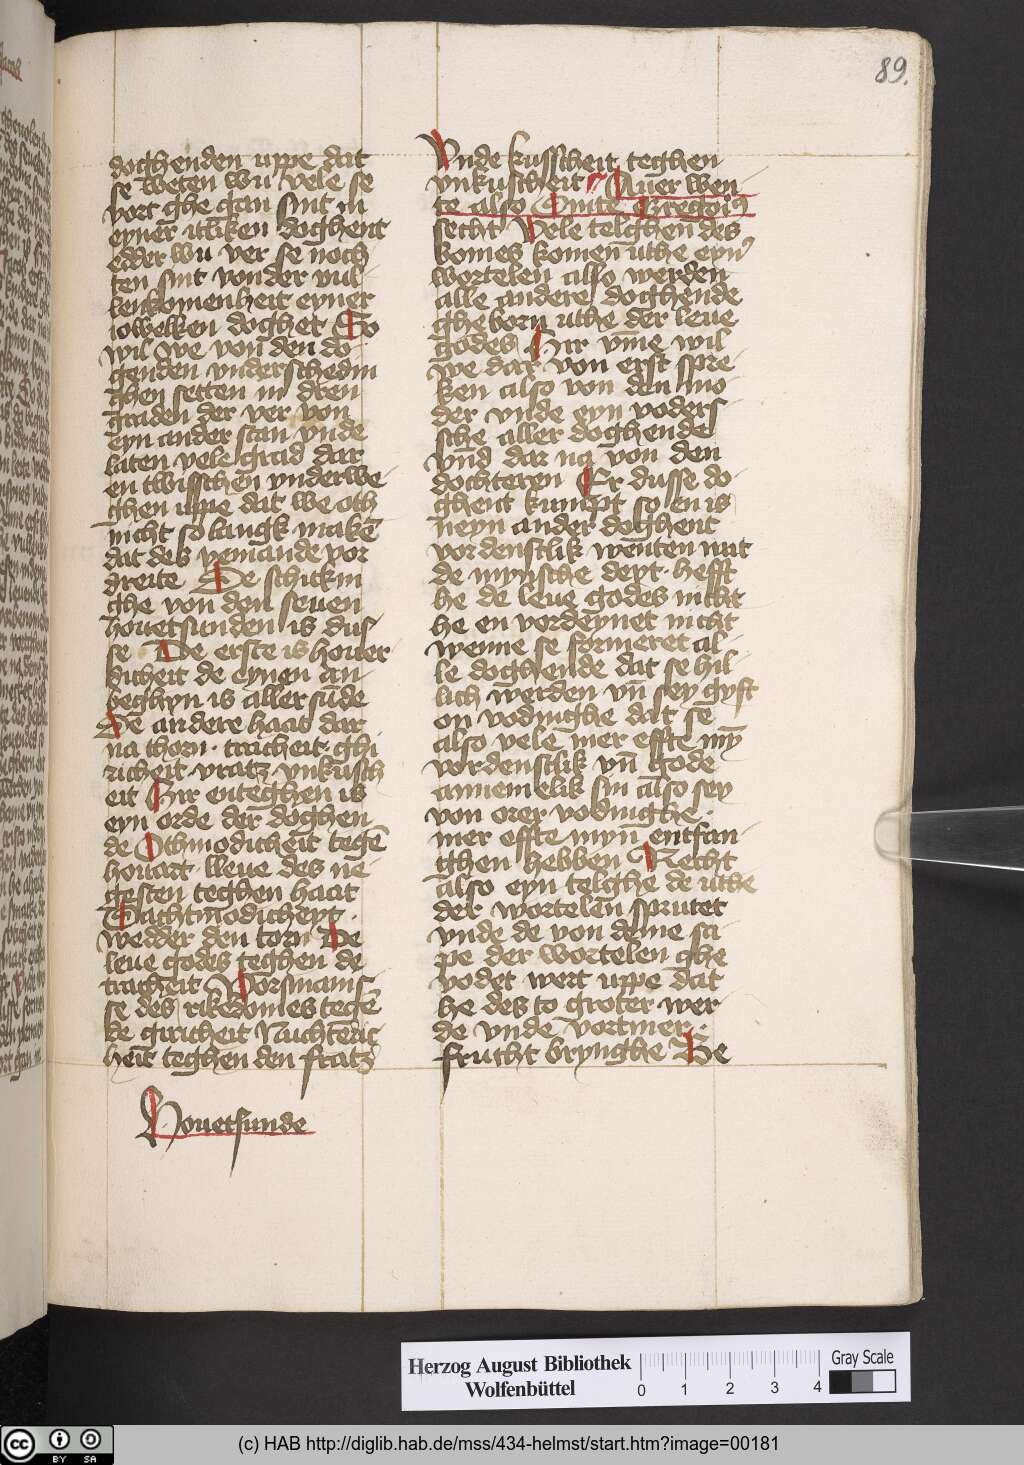 89.
doghenden uppe dat
se weten wu vele se
vort ghe gan sint in
eyner itliken doghent
edder wu ver se noch
ten sint von der vul
lenkomenheit eyner
iowelken doghet So
wil we von den do
genden vnderschedin
ghen setten in dren
graden der ver von
eyn ander stan vnde
laten vele grad dar
en twisschen vnderwe
ghen uppe dat we oth
nicht so langk makē
dat deb yemande vor
dreite De schickin
ghe von den seuen
houetsunden is dus
se De erste is houer
dicheit de eynen an
beghyn is aller sūde
De andere haat dar
na thorn · tracheit · ghi
richeit · vratz vnkusch
eit Hir enteghen is
eyn orde der doghen
de Othmodicheit tegē
houart · lleue des ne
gesten teghen haat
Sachtmodicheyt ·
wedder den torn De
leue godes teghen de
tracheit Vorsmanis
se des rikedomes tegē
de giricheit Nuchteric
heit teghen den fratz
Houetsunde
Vnde kusscheit teghen
vnkuscheit Auer wen
te also Sinte Gregoi9
secht Vele telghen des
bomes komen uthe eyn9
wortelen also werden
alle andere doghende
ghe born uthe der leue
godes Hir vme wil
we dar von erst spre
ken also von den mo
der vnde eyn voders
sche aller doghende
vnd dar na von den
dochteren Er dusse do
ghent kumpt so en is
neyn ander doghent
vordenstlik wenten nut
de mynsche deyt · hefft
he de leue godes nicht
he en vordeynet nicht
wenne se formeret al
le doghende dat se hil
lich werden vn sey gyft
on vodnighe dat se
also vele mer effte my
vordenstlik vn gode
annemelik sin also sey
von orer vodnighe ·
mer effte myn entfan
ghen hebben Recht
also eyn telghe de uthe
der wortelen sprutet
vnde de von deme sa
pe der wortelen ghe
vodet wert uppe dat
he des to groter wer
de vnde vortmer ·
frucht brynghe De
Herzog August Bibliothek
Wolfenbüttel
0 1 2 3 4
Gray Scale
cc BY SA
(c) HAB http://diglib.hab.de/mss/434-helmst/start.htm?image=00181